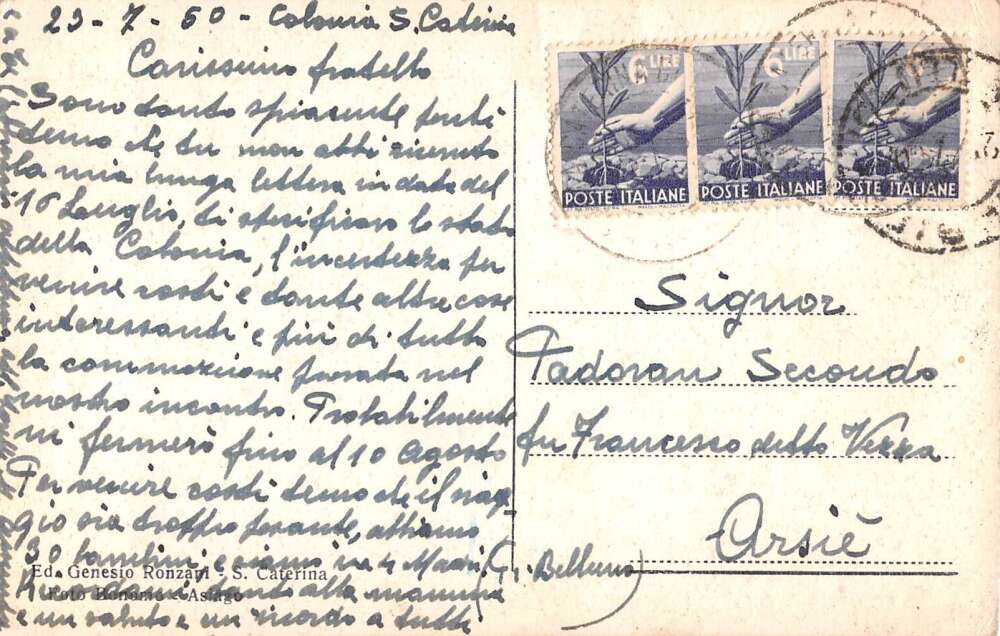 23-7-50-Colonia S. Caterina
Carissimo fratello
Sono tanto spiacente
temo che tu non abbi ricevuto
la mia lunga lettera in data del
10 Luglio, ti specificavo lo stato
della Colonia, l'incertezza per
venire costì e tante altre cose
interessanti e più di tutto
la commozione provata nel
nostro incontro. Probabilmente
mi fermerò fino al 10 Agosto
Per venire costì temo che il viag-
gio sia troppo pesante, abbiamo
30 bambini e siamo in 4
alla mamma
e un saluto e un ricordo a tutti
Ed. Genesio Ronzani - S. Caterina
Foto Bonomo - Asiago
6 LIRE
POSTE ITALIANE
6 LIRE
POSTE ITALIANE
POSTE ITALIANE
Signor
Padovan Secondo
fu Francesco detto
Arsiè
(Belluno)